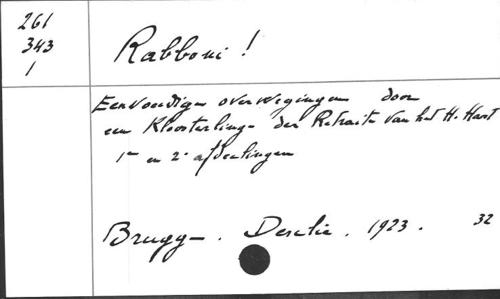 261
343
1
Rabboni !
Eenvoudige overwegingen door
een Kloosterling der Retraite van het H. Hart
1e en 2e afdeelingen
Brugge . Desclée . 1923 . 32